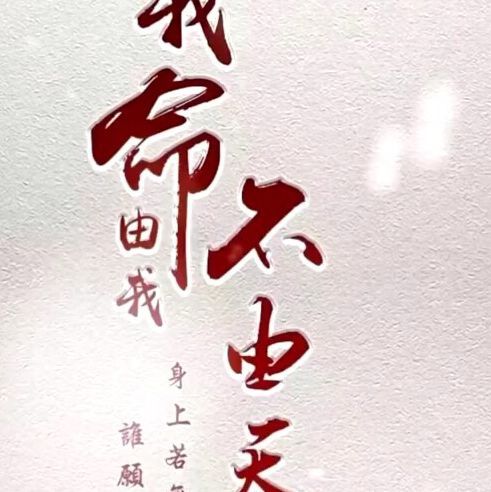 我命由我
不由天
身上若
誰願